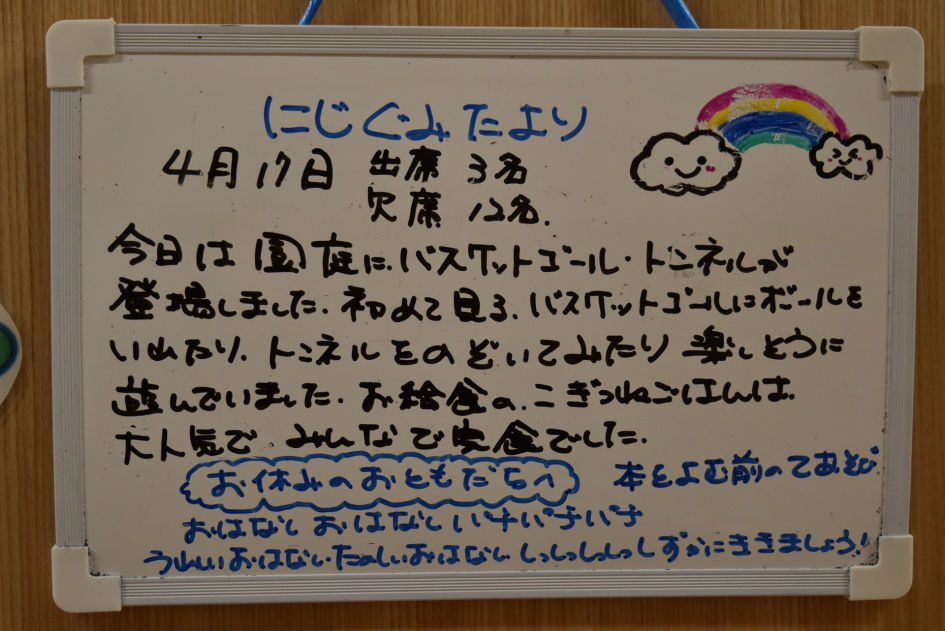 にじぐみだより
4月17日 出席 3名
欠席 12名.
今日は園庭に、バスケットゴール・トンネルが
登場しました。初めて見る、バスケットゴールにボールを
いれたり、トンネルをのぞいてみたり楽しそうに
遊んでいました。お給食の、こぎつねごはんは、
大人気で、みんなで完食でした。
お休みのおともだちへ 本をよむ前のてあそび
おはなし おはなし パチパチパチ
うれしいおはなし、たのしいおはなし しっしっしっしっしずかにききましょう!